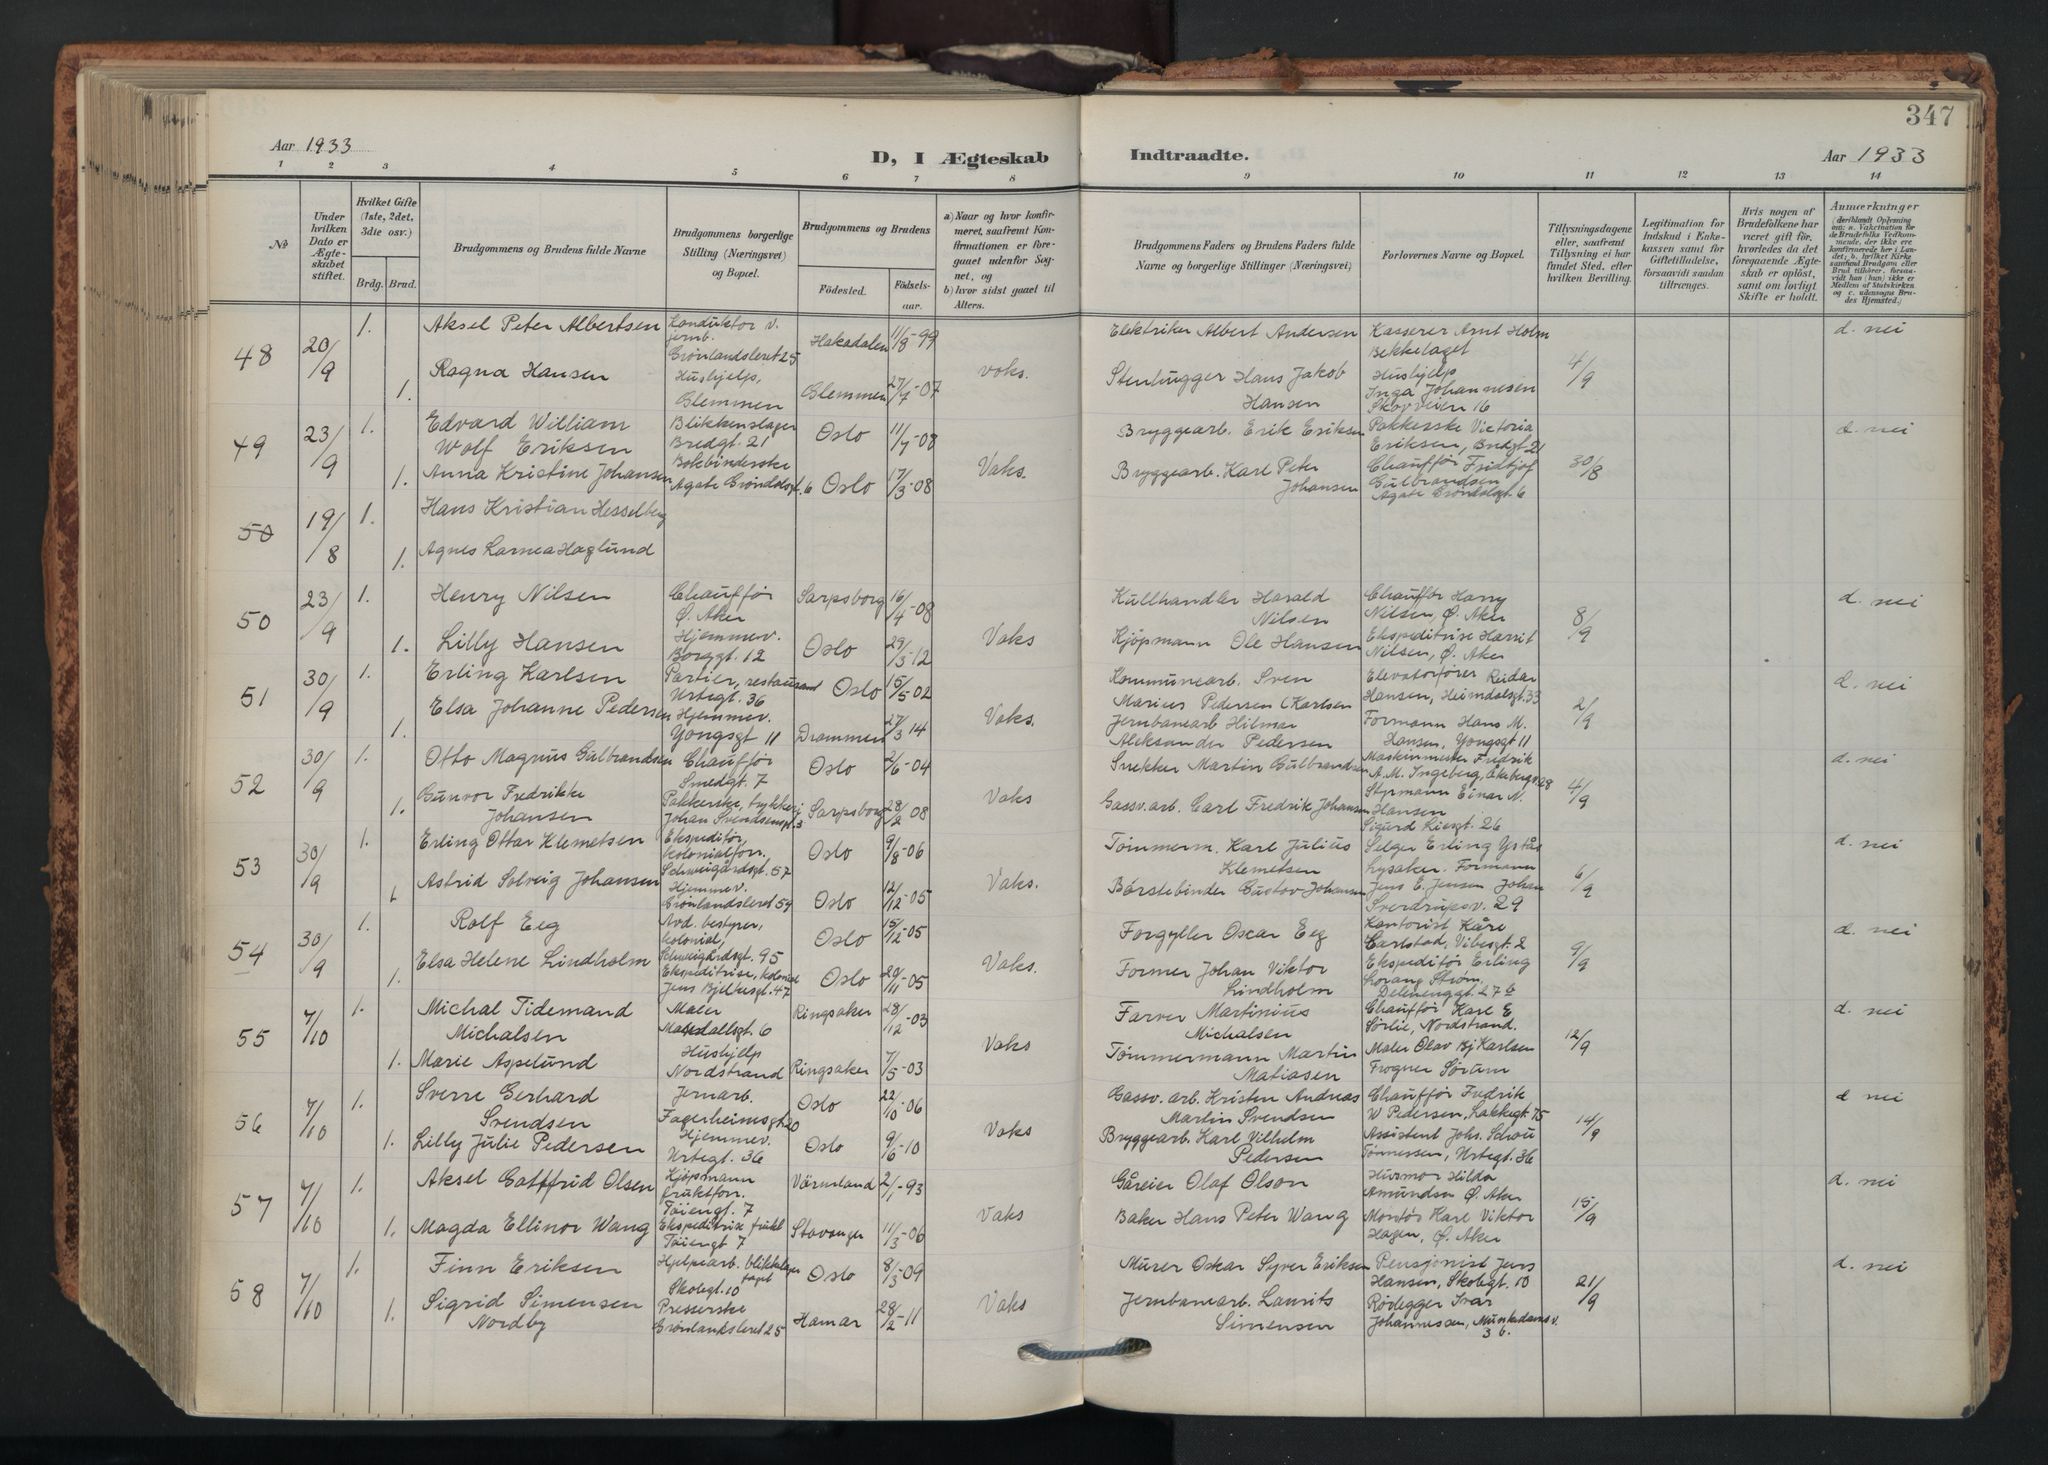 347
Aar 1933
D, I Ægteskab Indtraadte.
Aar 1933
1 2 3 4 5 6 7 8 9 10 11 12 13 14
№
Under hvilken Dato er Ægteskabet stiftet.
Hvilket Gifte (1ste, 2det, 3die osv.)
Brdg. Brud.
Brudgommens og Brudens fulde Navne
Brudgommens borgerlige Stilling (Næringsvei) og Bopæl.
Brudgommens og Brudens
Fødested. Fødselsaar.
a) Naar og hvor konfirmeret, saafremt Konfirmationen er foregaaet udenfor Sognet, og
b) hvor sidst gaaet til Alters.
Brudgommens Faders og Brudens Faders fulde Navne og borgerlige Stillinger (Næringsvei)
Forlovernes Navne og Bopæl.
Tillysningsdagene eller, saafremt Tillysning ei har fundet Sted, efter hvilken Bevilling.
Legitimation for Indskud i Enkekassen samt for Giftetilladelse, forsaavidt saadan tiltrænges.
Hvis nogen af Brudefolkene har været gift før, hvorledes da det foregaaende Ægteskab er opløst, samt om lovligt Skifte er holdt.
Anmærkninger
48 20/9 1. Aksel Peter Albertsen
Konduktør v. jernb.
Grønlandsleret 25
Hakadalen 11/8-99
Elektriker Albert Andersen
Kasserer Arnt Holm
Bekkelaget
4/9
d. nei
1. Ragna Hansen
Hushjelp,
Glemmen
Glemmen 27/7-07
voks.
Stenhugger Hans Jakob
Hansen
Hushjelp
Inga Johannesen
Skovveien 16
49 23/9 1. Edvard William
Wolf Eriksen
Blikkenslager
Bredgt. 21
Oslo 11/7-08
Bryggearb. Erik Eriksen
Pakkerske Victoria
Eriksen, Bredgt 21
30/8
d. nei
1. Anna Kristine Johansen
Bokbinderske
Agate Grøndalsgt. 6
Oslo 17/3-08
Vaks.
Bryggearb. Karl Peter
Johansen
Chauffør Fridtjof
Gulbrandsen
Agate Grøndalsgt. 6
50 19/8 1. Hans Kristian Hesselberg
1. Agnes Larnea Haglund
50 23/9 1. Henry Nilsen
Chauffør
Ø. Aker
Sarpsborg 16/4-08
Kullhandler Harald
Nilsen
Chauffør Harry
Nilsen, Ø. Aker
8/9
d. nei
1. Lilly Hansen
Hjemmev.
Borggt. 12
Oslo 29/3-12
Vaks
Kjøpmann Ole Hansen
Ekspeditrise Harrit
Nilsen, Ø. Aker
51 30/9 1. Erling Karlsen
Portier, restaurant
Urtegt. 36
Oslo 15/5 02
Kommunearb. Sven
Marius Pedersen (Karlsen
Elevatorfører Reidar
Hansen, Heimdalsgt. 33
2/9
d. nei
1. Elsa Johanne Pedersen
Hjemmev.
Yongsgt 11
Drammen 27/3 14
Vaks.
Jernbanearb Hilmar
Aleksander Pedersen
Formann Hans M.
Hansen, Yongsgt 11
52 30/9 1. Otto Magnus Gulbrandsen
Chauffør
Smedgt. 7
Oslo 2/6-04
Snekker Martin Gulbrandsen
Maskinmester Fredrik
A. M. Ingeberg, Åkebergv. 28
4/9
d. nei
1. Gunvor Fredrikke
Johansen
Pakkerske, trykkeri
Johan Svendsensgt. 3
Sarpsborg 28/2 08
Vaks
Gassv. arb. Carl Fredrik Johansen
Styrmann Einar N.
Hansen
26
53 30/9 1. Erling Ottar Klemetsen
Ekspeditør
kolonialforr.
Schweigårdsgt. 57
Oslo 9/8-06
Tømmerm. Karl Julius
Klemetsen
Selger Erling Ystås
Lysaker.
6/9
d. nei
Astrid Solveig Johansen
Hjemmev.
Grønlandsleret 59
Oslo 12/12-05
Vaks.
Børstebinder Gustav Johansen
Formann
Jens E. Jensen Johan
Sverdrupsv. 29
54 30/9 1. Rolf Eeg
Avd. bestyrer,
kolonial,
Schweigårdsgt. 95
Oslo 15/12-05
Forgyller Oscar Eeg
Kontorist Kåre
Carlstad, Vibesgt. 2
9/9
d. nei
1. Elsa Helene Lindholm
Ekspeditrise, kolonial
Jens Bjelkesgt. 47
Oslo 20/11-05
Vaks.
Former Johan Viktor
Lindholm
Ekspeditør Erling
Lorang Strøm
Delenenggt. 27 b
55 7/10 1. Michal Tidemand
Michalsen
Maler
6
Ringsaker 28/12-03
Farver Martinius
Michalsen
Chauffør Karl E
Sørlie, Nordstrand.
12/9
d. nei
1. Marie Aspelund
Hushjelp
Nordstrand
Ringsaker 7/5-03
Vaks
Tømmermann Martin
Matiasen
Maler Olav Bj Karlsen
Frogner Sørum
56 7/10 1. Sverre Gerhard
Svendsen
Jernarb.
Fagerheimsgt 20
Oslo 22/10-06
Gassv. arb. Kristen Andreas
Martin Svendsen
Chauffør Fredrik
W Pedersen, Lakkegt. 75
14/9
d nei
1. Lilly Julie Pedersen
Hjemmev.
Urtegt. 36
Oslo 9/6-10
Vaks
Bryggearb. Karl Vilhelm
Pedersen
Assistent Johs. Schou
Tønnessen, Urtegt. 36
57 7/10 1. Aksel Gottfrid Olsen
Kjøpmann
fruktforr.
Tøiengt. 7
Värmland 2/1-93
Gåreier Olaf Olson
Husmor Hilda
Amundsen Ø. Aker
15/9
d. nei
1. Magda Ellinor Wang
Ekspeditrise frukt
Tøiengt 7
Stavanger 11/3-06
Vaks
Baker Hans Peter Wang
Montør Karl Viktor
Hagen, Ø. Aker
58 7/10 1. Finn Eriksen
Hjelpearb. blikkslagerfaget
Skolegt. 10
Oslo 8/3-09
Murer Oskar Syver Eriksen
Pensjonist Jens
Hansen, Skolegt. 10
21/9
d. nei
1. Sigrid Simensen
Nordby
Presserske
Grønlandsleret 25
Hamar 28/2-11
Vaks
Jernbanearb. Laurits
Simensen
Rørlegger Ivar
Johannessen, Munkedamsv.
3 b.